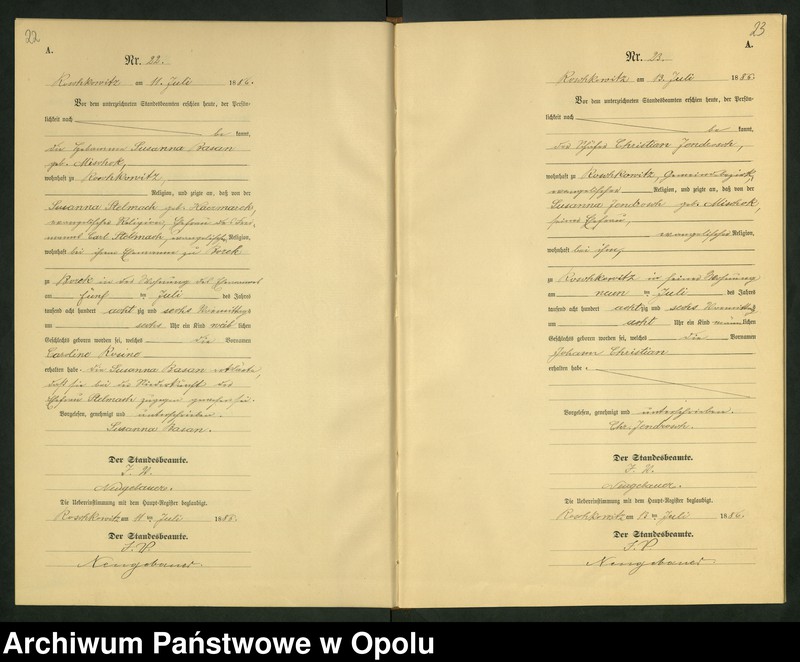 22
A.
Nr. 22.
Roschkowitz am 11. Juli 1886.
Vor dem unterzeichneten Standesbeamten erschien heute, der Persön-
lichkeit nach
be kannt,
die Hebamme Susanna Basan
geb. Mischok,
wohnhaft zu Roschkowitz,
Religion, und zeigte an, daß von der
Susanna Stelmach geb.
evangelischer Religion, Ehefrau des
Carl Stelmach, evangelischer Religion,
wohnhaft bei ihrem Ehemanne zu Borek
zu Borek in der Wohnung des Ehemannes
am fünf ten Juli des Jahres
tausend acht hundert acht zig und sechs Vormittags
um sechs Uhr ein Kind weib lichen
Geschlechts geboren worden sei, welches die Vornamen
Caroline
erhalten habe. Die Susanna Basan erklärte,
daß sie bei der Niederkunft der
Ehefrau Stelmach zugegen gewesen sei.
Vorgelesen, genehmigt und unterschrieben.
Susanna Basan.
Der Standesbeamte.
J. V.
Neugebauer.
Die Uebereinstimmung mit dem Haupt-Register beglaubigt.
Roschkowitz am 11 ten Juli 1886.
Der Standesbeamte.
J. V.
Neugebauer
23
A.
Nr. 23.
Roschkowitz am 13. Juli 1886.
Vor dem unterzeichneten Standesbeamten erschien heute, der Persön-
lichkeit nach
be kannt,
der Schäfer Christian Jendrosch,
wohnhaft zu Roschkowitz, Gemeindebezirk,
evangelischer Religion, und zeigte an, daß von der
Susanna Jendrosch geb. Mischok,
seiner Ehefrau,
evangelischer Religion,
wohnhaft bei ihm,
zu Roschkowitz in seiner Wohnung
am neun ten Juli des Jahres
tausend acht hundert acht zig und sechs Vormittags
um acht Uhr ein Kind männ lichen
Geschlechts geboren worden sei, welches die Vornamen
Johann Christian
erhalten habe.
Vorgelesen, genehmigt und unterschrieben.
Chr. Jendrosch.
Der Standesbeamte.
J. V.
Neugebauer.
Die Uebereinstimmung mit dem Haupt-Register beglaubigt.
Roschkowitz am 13 ten Juli 1886.
Der Standesbeamte.
J. V.
Neugebauer
Archiwum Państwowe w Opolu